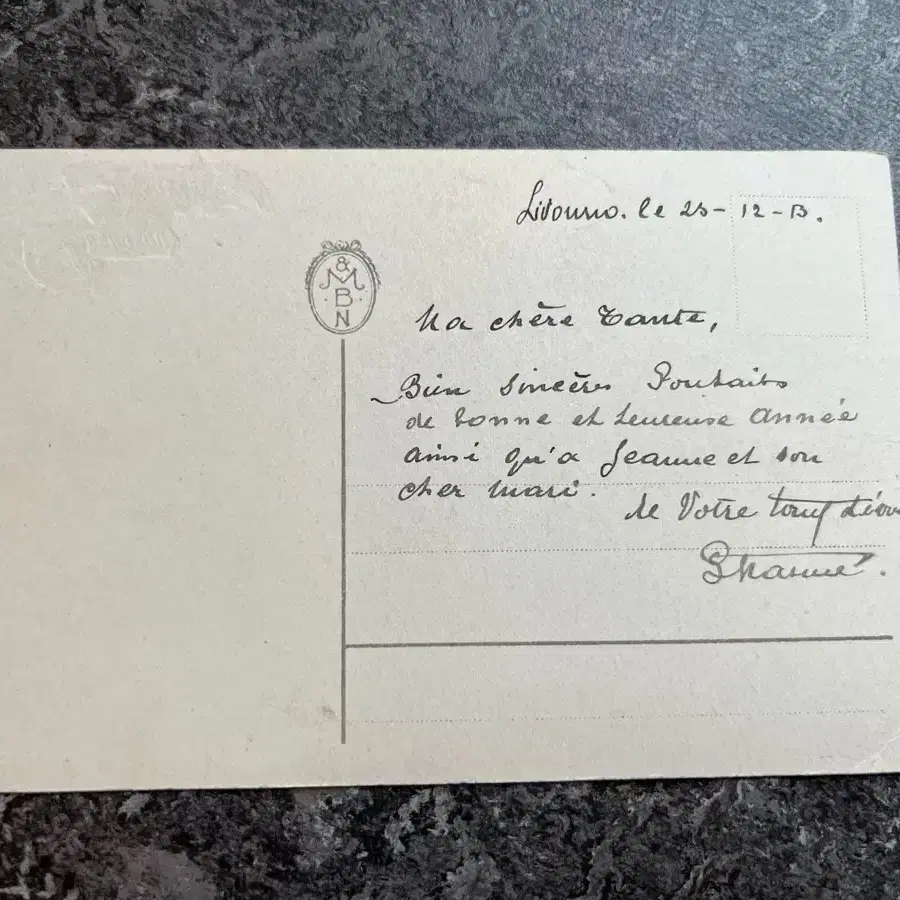 Livourno. le 23-12-13.
&
M
B
N
Ma chère Tante,
Bien Sincères Souhaits
de bonne et heureuse Année
ainsi qu'a Jeanne et son
cher mari.
de Votre tout